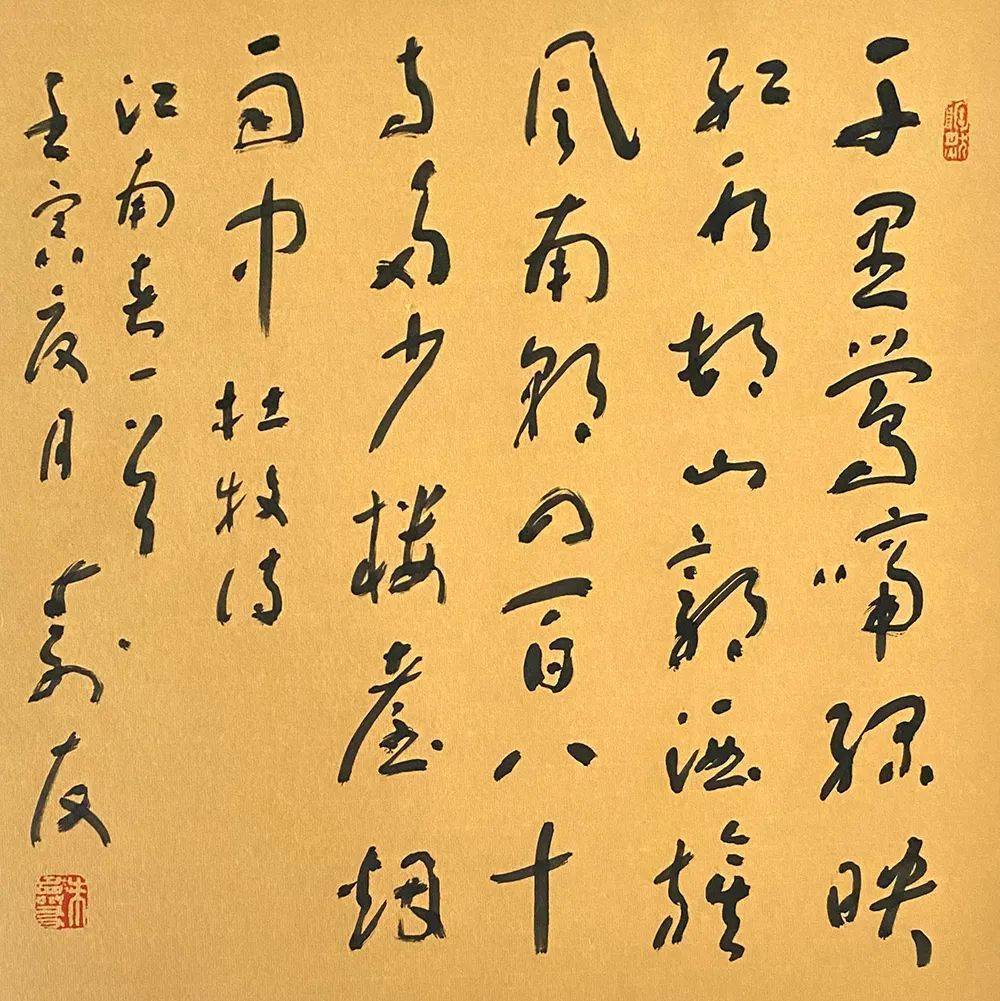 千里鶯啼綠映
紅水邨山郭酒旗
風南朝四百八十
寺多少樓臺烟
雨中 杜牧诗
江南春一首
壬寅夏月 壽友
朱壽友